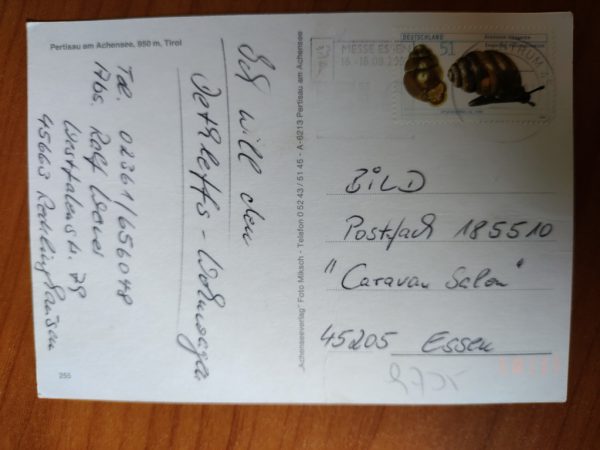 Pertisau am Achensee, 950 m, Tirol
Ich will den
Dethleffs - Wohnwagen
Tel. 02361/656048
Abs. Ralf
Westfalenstr. 79
45663 Recklinghausen
255
"Achenseeverlag" Foto Miksch - Telefon 0 52 43 / 51 45 - A-6213 Pertisau am Achensee
DEUTSCHLAND
51
MESSE ESSEN
BILD
Postfach 185510
"Caravan Salon"
45205 Essen